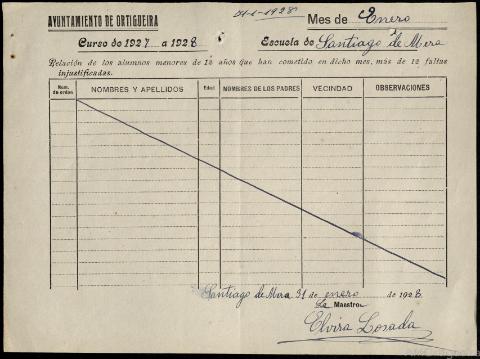 AYUNTAMIENTO DE ORTIGUEIRA
31-1-1928
Mes de Enero
Curso de 1927 a 1928
Escuela de Santiago de Mera
Relación de los alumnos menores de 12 años que han cometido en dicho mes, más de 12 faltas
injustificadas.
Núm. de orden
NOMBRES Y APELLIDOS
Edad
NOMBRES DE LOS PADRES
VECINDAD
OBSERVACIONES
Santiago de Mera 31 de enero de 1928
La Maestra
Elvira Losada